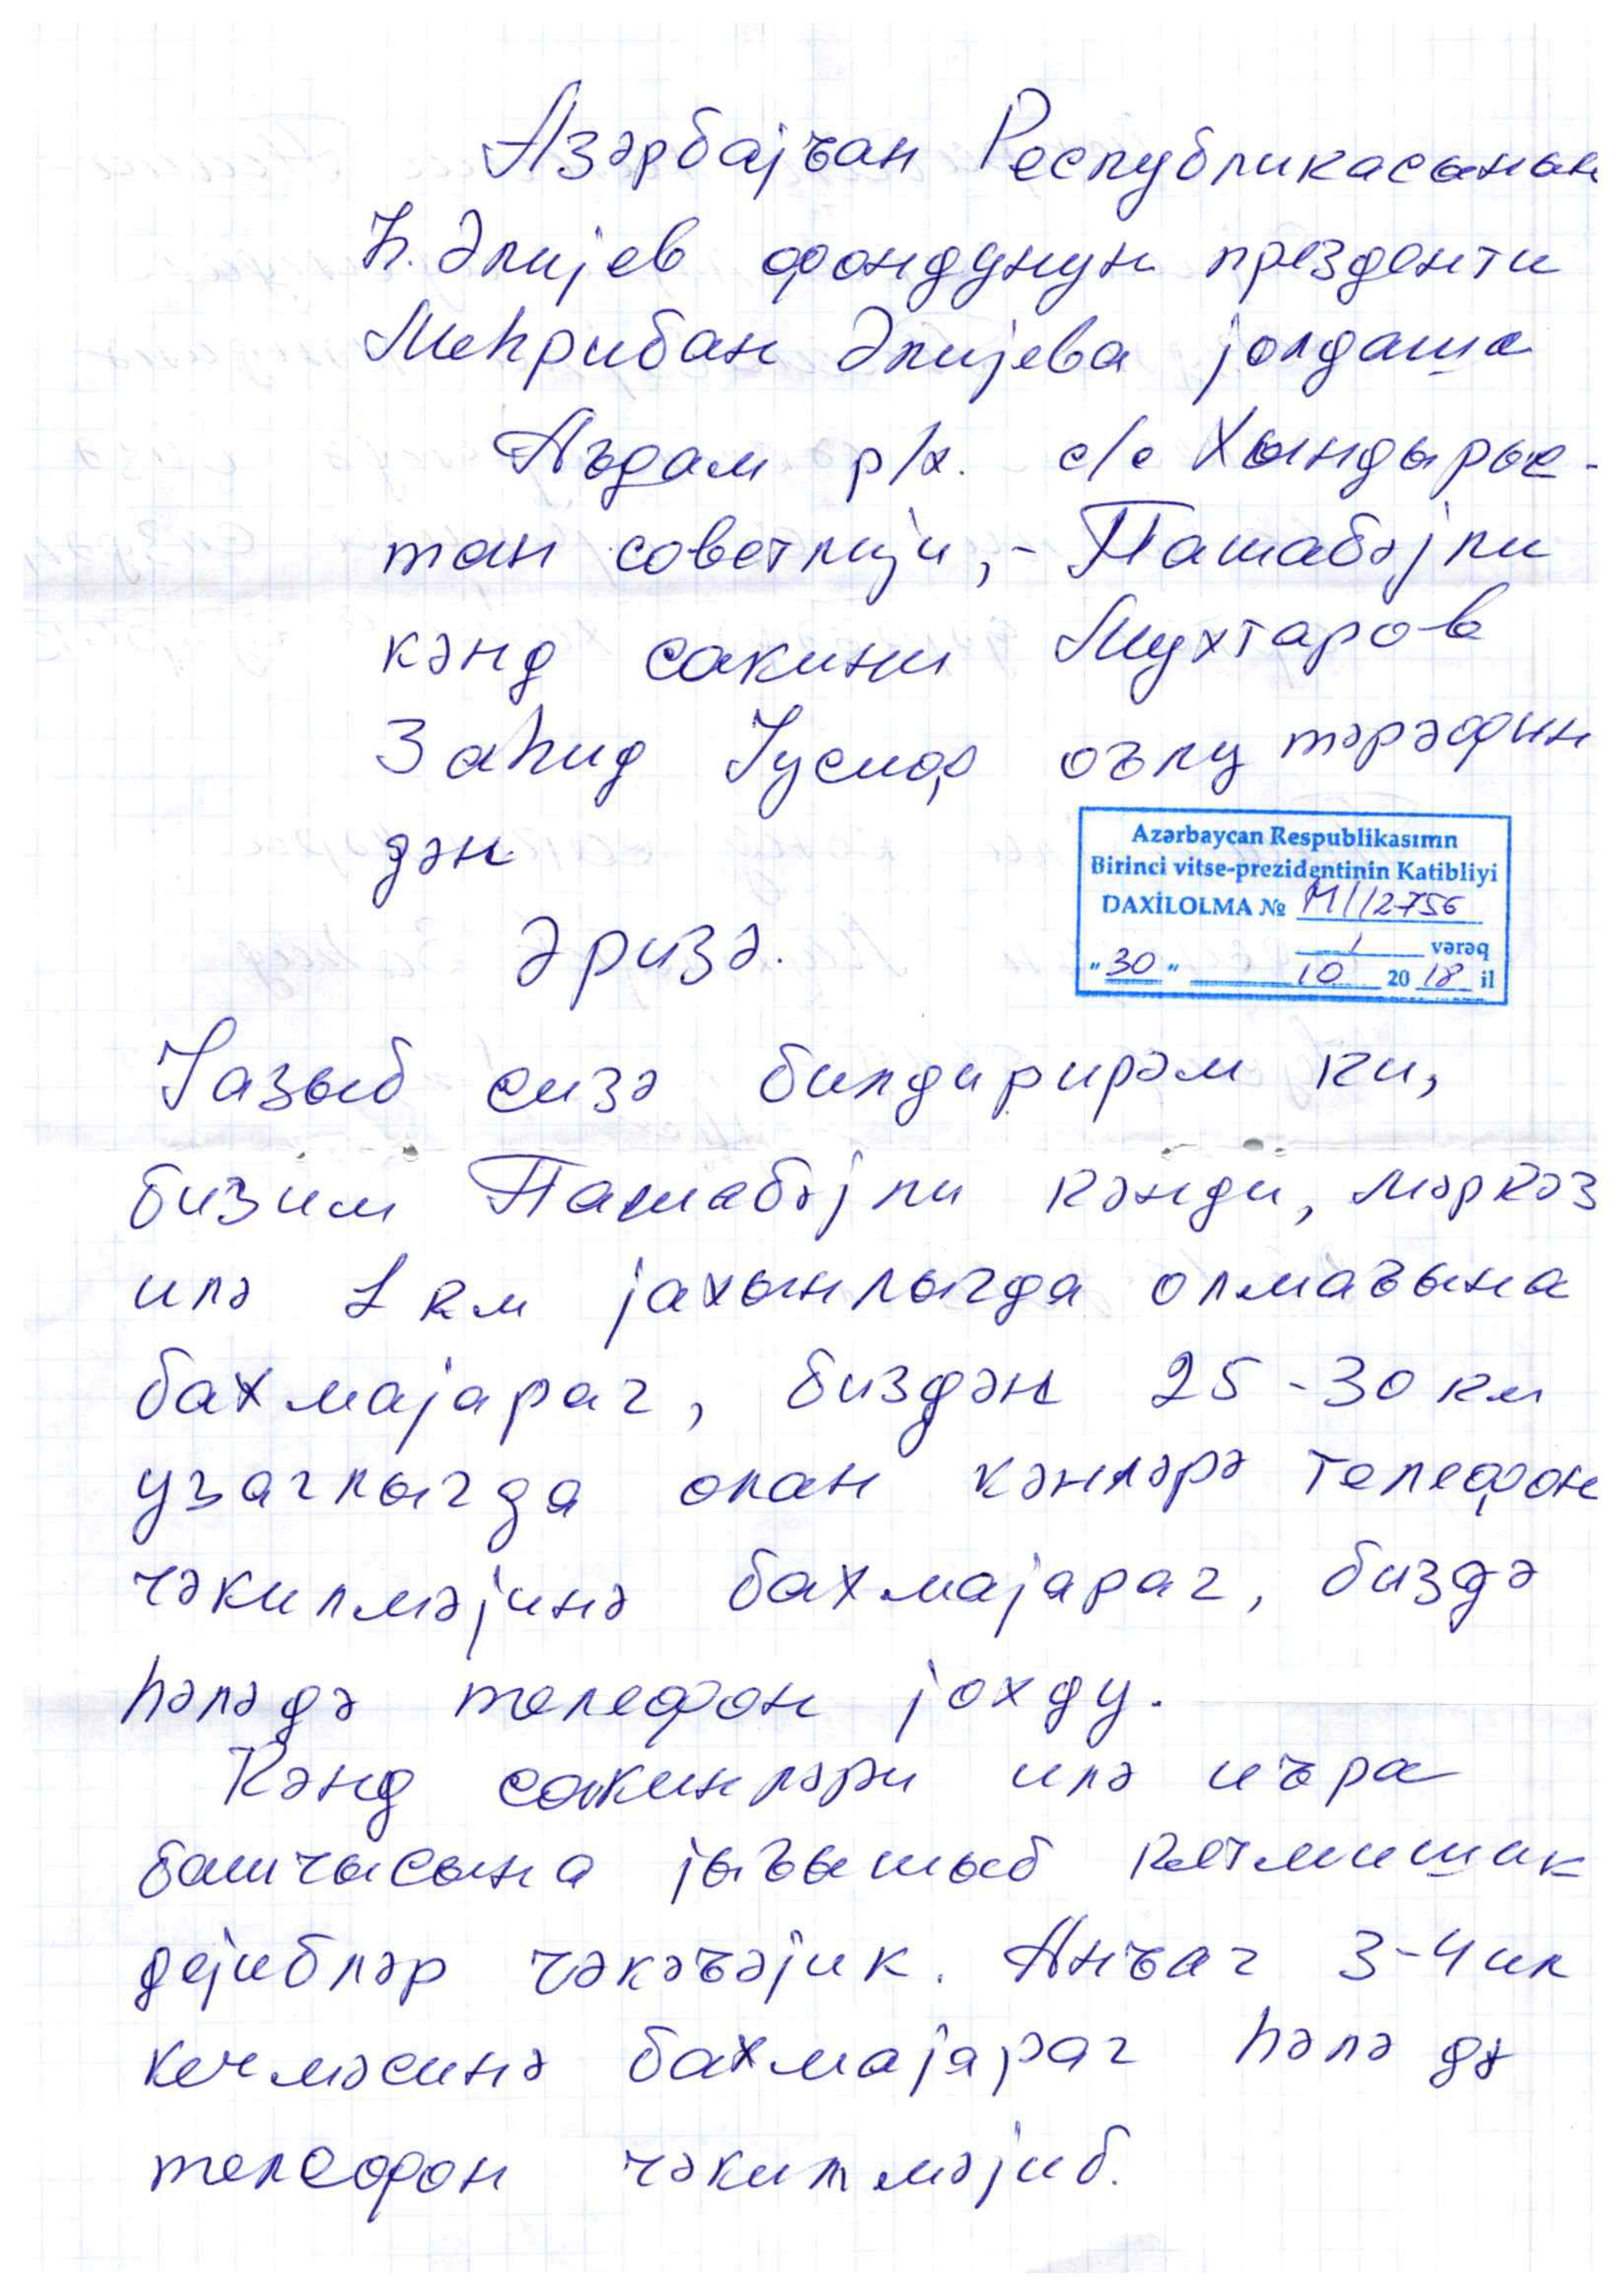 Азәрбајҹан Республикасынын
Һ. Әлијев фондунун президенти
Меһрибан Әлијева јолдаша
Ағдам р/н. с/с Хындырыс-
тан советлији, - Пашабәјли
кәнд сакини Мухтаров
Заһид Јусиф оғлу тәрәфин
дән
Әризә.
Azərbaycan Respublikasının
Birinci vitse-prezidentinin Katibliyi
DAXİLOLMA № M//2756
1 vərəq
"30" 10 2018 il
Јазыб сизә билдирирәм ки,
бизим Пашабәјли кәнди, мәркәз
илә 1 км јахынлыгда олмағына
бахмајараг, биздән 25-30 км
узаглыгда олан кәнләрә телефон
чәкилмәјинә бахмајараг, биздә
һәләдә телефон јохду.
Кәнд сакинләри илә иҹра
башчысына јығышыб кетмишик
дејибләр чәкәҹәјик. Анҹаг 3-4 ил
кечмәсинә бахмајараг һәлә дә
телефон чәкилмәјиб.